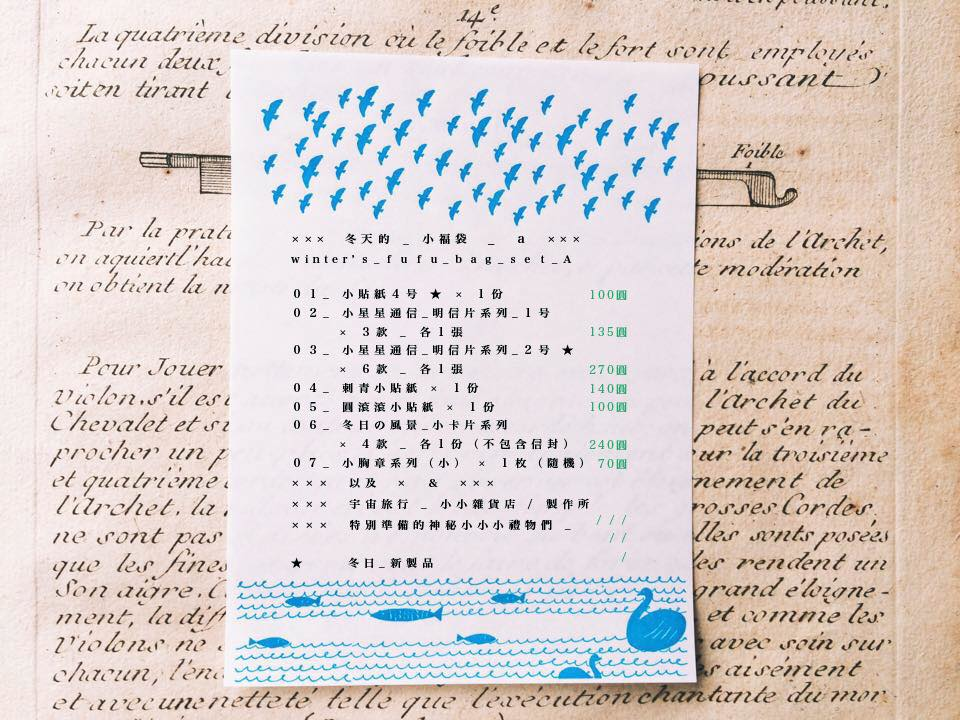 14ᵉ
La quatrième division où le foible et le fort sont employés
chacun deux
soiten tirant
oussant
Foible
Par la prati
ons de l'Archet,
on aquiert l'ha
modération
on obtient la n
Pour Jouer
à l'accord du
violon, s'il es
l'Archet du
Chevalet et su
peut s'en ra-
procher un p
ur la troisième
et quatrième
nement de
l'Archet, la
rosses Cordes.
ne sont pas
lles sont posées
que les fines
les rendent un
Son aigre. C
grand éloigne-
ment, la diff
et comme les
Violons ne s
avec soin sur
chacun, l'en
s aisément
et avec une netteté, telle que l'exécution chantante du mor
××× 冬天的 _ 小福袋 _ a ×××
winter's_fufu_bag_set_A
01_ 小貼紙4号 ★ × 1份 100圓
02_ 小星星通信_明信片系列_1号
× 3款 _ 各1張 135圓
03_ 小星星通信_明信片系列_2号 ★
× 6款 _ 各1張 270圓
04_ 刺青小貼紙 × 1份 140圓
05_ 圓滾滾小貼紙 × 1份 100圓
06_ 冬日の風景_小卡片系列
× 4款 _ 各1份（不包含信封） 240圓
07_ 小胸章系列（小） × 1枚（隨機） 70圓
××× 以及 × & ×××
××× 宇宙旅行 _ 小小雜貨店 / 製作所
××× 特別準備的神秘小小小禮物們 _ ///
//
/
★ 冬日_新製品